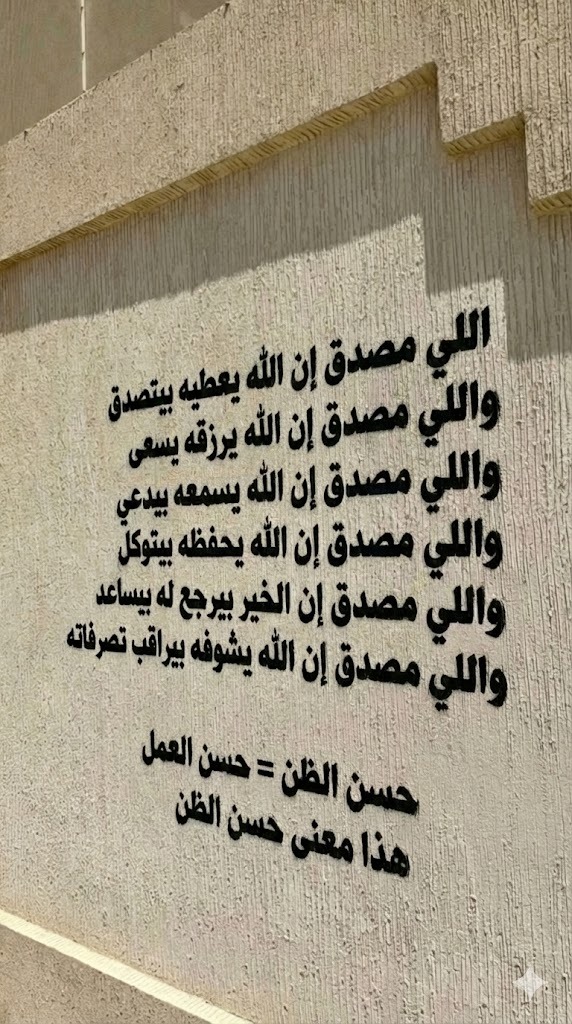 اللي مصدق إن الله يعطيه بيتصدق
واللي مصدق إن الله يرزقه يسعى
واللي مصدق إن الله يسمعه بيدعي
واللي مصدق إن الله يحفظه بيتوكل
واللي مصدق إن الخير بيرجع له بيساعد
واللي مصدق إن الله يشوفه بيراقب تصرفاته
حسن الظن = حسن العمل
هذا معنى حسن الظن